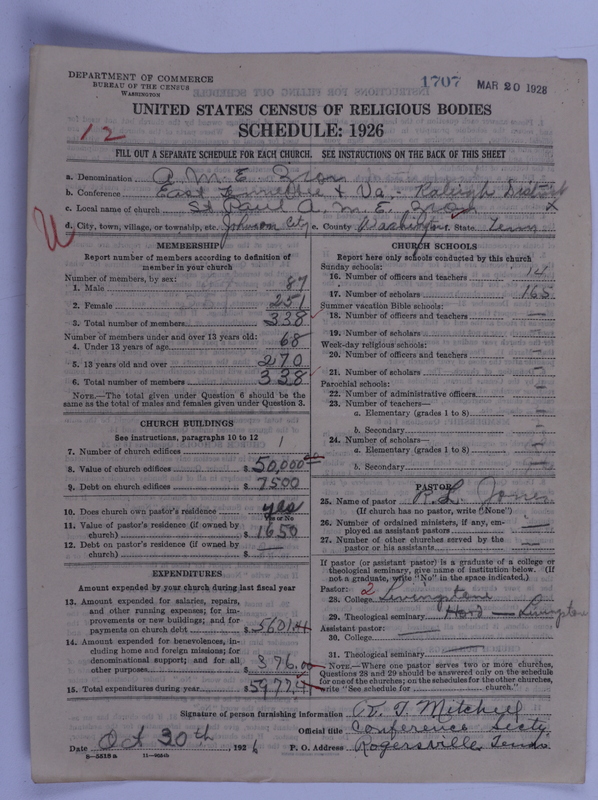 DEPARTMENT OF COMMERCE
BUREAU OF THE CENSUS
WASHINGTON
1707 MAR 20 1928
UNITED STATES CENSUS OF RELIGIOUS BODIES
SCHEDULE: 1926
12
FILL OUT A SEPARATE SCHEDULE FOR EACH CHURCH. SEE INSTRUCTIONS ON THE BACK OF THIS SHEET
a. Denomination A. M. E. Zion
b. Conference East Tennessee & Va. - Raleigh District
c. Local name of church St Paul A. M. E. Zion X
d. City, town, village, or township, etc. Johnson City e. County Washington f. State Tenn
MEMBERSHIP
Report number of members according to definition of
member in your church
Number of members, by sex:
1. Male 87
2. Female 251
3. Total number of members 338
Number of members under and over 13 years old:
4. Under 13 years of age 68
5. 13 years old and over 270
6. Total number of members 338
NOTE.—The total given under Question 6 should be
same as the total of males and females given under Question 3.
CHURCH BUILDINGS
See instructions, paragraphs 10 to 12
7. Number of church edifices 1
8. Value of church edifices $50,000.00
9. Debt on church edifices $7500
10. Does church own pastor's residence yes
Yes or No
11. Value of pastor's residence (if owned by
church) $1650
12. Debt on pastor's residence (if owned by
church) $ —
EXPENDITURES
Amount expended by your church during last fiscal year
13. Amount expended for salaries, repairs,
and other running expenses; for im-
provements or new buildings; and for
payments on church debt $5601.41
14. Amount expended for benevolences, in-
cluding home and foreign missions; for
denominational support; and for all
other purposes 376.00
15. Total expenditures during year $5977.41
CHURCH SCHOOLS
Report here only schools conducted by this church
Sunday schools:
16. Number of officers and teachers 14
17. Number of scholars 165
Summer vacation Bible schools:
18. Number of officers and teachers —
19. Number of scholars —
Week-day religious schools:
20. Number of officers and teachers —
21. Number of scholars —
Parochial schools:
22. Number of administrative officers —
23. Number of teachers—
a. Elementary (grades 1 to 8) —
b. Secondary —
24. Number of scholars—
a. Elementary (grades 1 to 8) —
b. Secondary —
PASTOR
25. Name of pastor R. L. Jones
(If church has no pastor, write "None")
26. Number of ordained ministers, if any, em-
ployed as assistant pastors —
27. Number of other churches served by the
pastor or his assistants —
If pastor (or assistant pastor) is a graduate of a college or
theological seminary, give name of institution below. (If
not a graduate, write "No" in the space indicated.)
Pastor: 2
28. College Livingstone
29. Theological seminary Hood — Livingstone
Assistant pastor:
30. College —
31. Theological seminary —
NOTE.—Where one pastor serves two or more churches,
Questions 28 and 29 should be answered only on the schedule
for one of the churches; on the schedules for the other churches,
write "See schedule for church."
Signature of person furnishing information Mitchell
Official title Conference Secty
Date Oct 30th, 1926 P. O. Address Rogersville, Tenn.
8—5518a